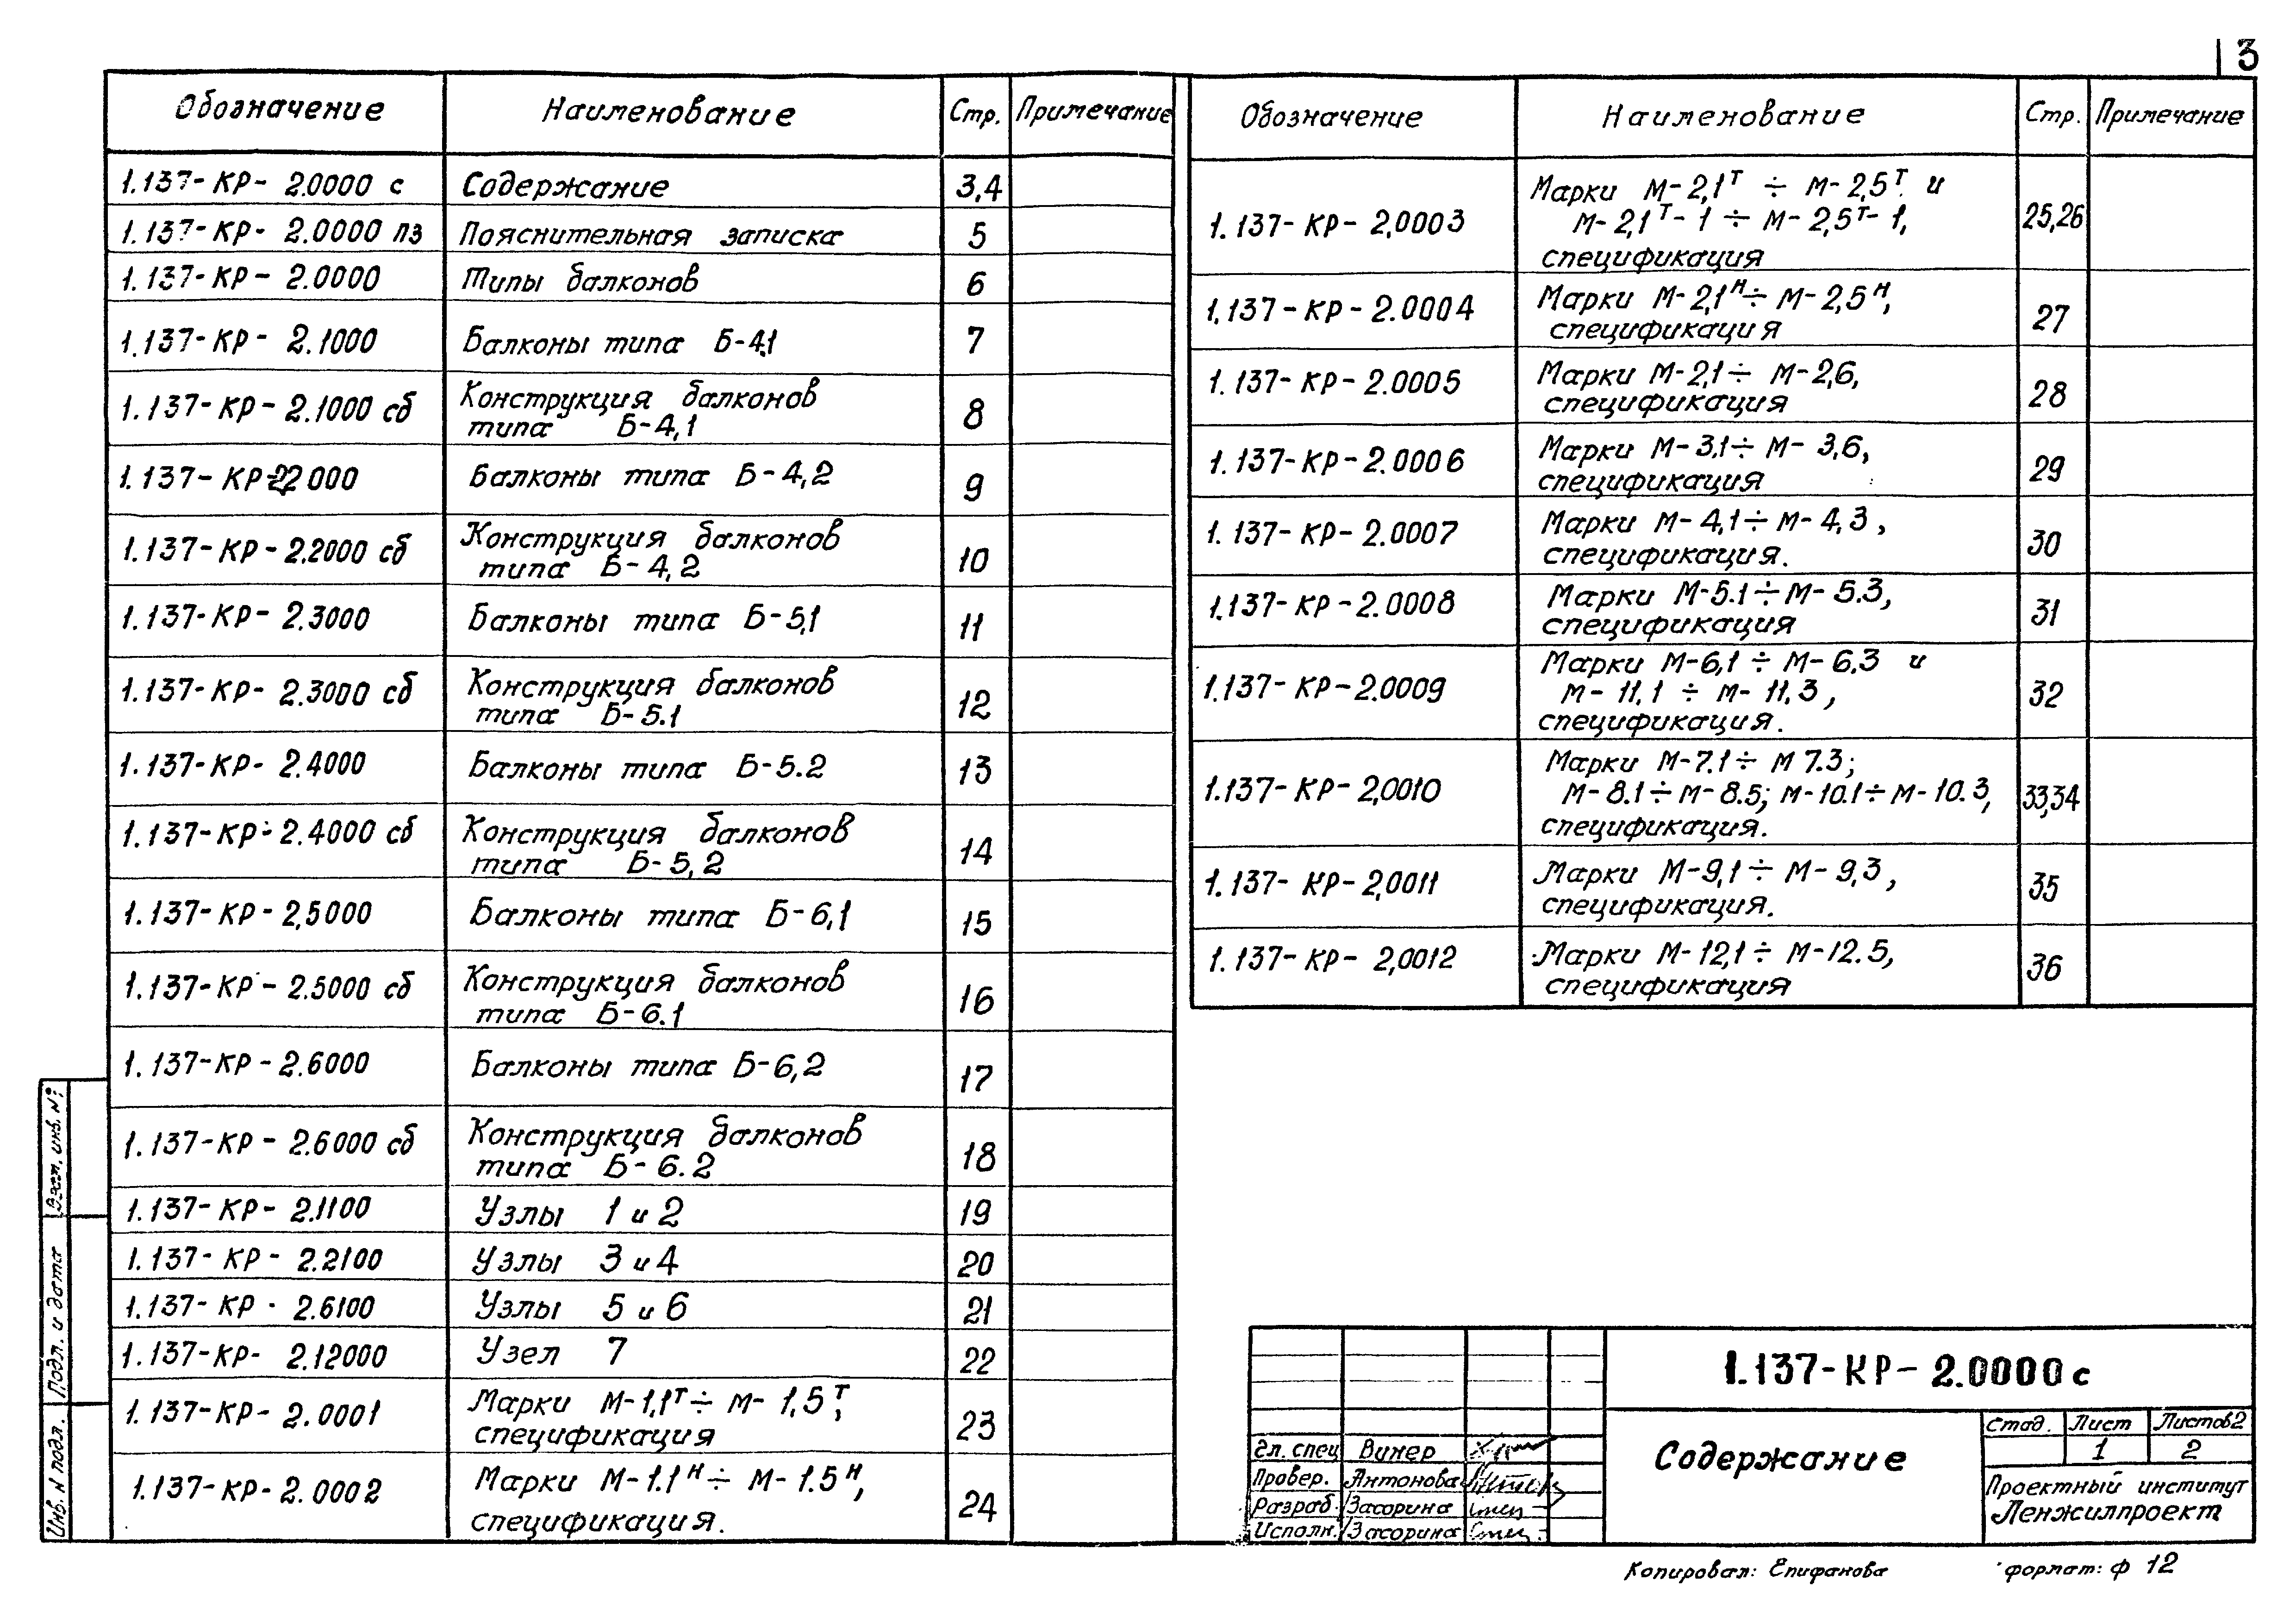 3
Обозначение Наименование Стр. Примечание
1.137-КР- 2.0000 с Содержание 3,4
1.137-КР- 2.0000 пз Пояснительная записка 5
1.137-КР- 2.0000 Типы балконов 6
1.137-КР- 2.1000 Балконы типа Б-4,1 7
1.137-КР-2.1000 сб Конструкция балконов
типа Б-4,1 8
1.137-КР-2.2000 Балконы типа Б-4,2 9
1.137-КР-2.2000 сб Конструкция балконов
типа Б-4,2 10
1.137-КР- 2.3000 Балконы типа Б-5,1 11
1.137-КР- 2.3000 сб Конструкция балконов
типа Б-5.1 12
1.137-КР- 2.4000 Балконы типа Б-5.2 13
1.137-КР-2.4000 сб Конструкция балконов
типа Б-5,2 14
1.137-КР-2,5000 Балконы типа Б-6,1 15
1.137-КР-2.5000 сб Конструкция балконов
типа Б-6.1 16
1.137-КР-2.6000 Балконы типа Б-6,2 17
1.137-КР-2.6000 сб Конструкция балконов
типа Б-6.2 18
1.137-КР- 2.1100 Узлы 1 и 2 19
1.137-КР- 2.2100 Узлы 3 и 4 20
1.137-КР- 2.6100 Узлы 5 и 6 21
1.137-КР- 2.12000 Узел 7 22
1.137-КР- 2.0001 Марки М-1,1ᵀ÷ М- 1,5ᵀ,
спецификация 23
1.137-КР-2.0002 Марки М-1.1ᴴ÷ М-1.5ᴴ,
спецификация. 24
Обозначение Наименование Стр. Примечание
1.137-КР-2,0003 Марки М-2,1ᵀ ÷ М-2,5ᵀ и
М-2,1ᵀ-1 ÷ М-2,5ᵀ-1,
спецификация 25,26
1.137-КР-2.0004 Марки М-2,1ᴴ÷ М-2,5ᴴ,
спецификация 27
1.137-КР-2.0005 Марки М-2,1÷ М-2,6,
спецификация 28
1.137-КР-2.0006 Марки М-3,1÷ М- 3,6,
спецификация 29
1.137-КР-2.0007 Марки М-4,1÷М-4,3,
спецификация. 30
1.137-КР-2.0008 Марки М-5.1÷М-5.3,
спецификация 31
1.137-КР-2.0009 Марки М-6,1 ÷ М-6.3 и
М-11,1 ÷ М-11,3,
спецификация. 32
1.137-КР-2,0010 Марки М-7.1÷ М 7.3;
М-8.1÷М-8.5; М-10.1÷М-10.3,
спецификация. 33,34
1.137-КР-2,0011 Марки М-9,1÷ М-9,3,
спецификация. 35
1.137-КР-2,0012 Марки М-12,1÷ М-12.5,
спецификация 36
Взам. инв. №
Подл. и дата
Инв. N подл.
1.137-КР-2.0000 с
Содержание
Стад. Лист Листов 2
1 2
Гл. спец Винер
Провер. Антонова
Разраб. Засорина
Исполн. Засорина
Проектный институт
Ленжилпроект
Копировал: Епифанова формат: ф 12